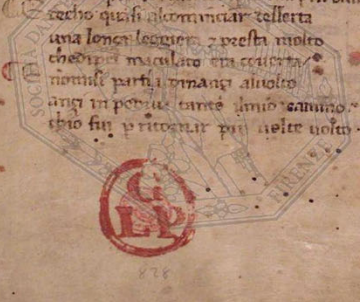 cecho quasi alcominciar dellerta
una lonça leggiera ⁊ presta molto
chedipel maculato era coverta
nonmisi partia dinançi alvolto
ançi inpediva tanto ilmio camino
chio fui p ritornar piu volte volto
828
SOCIETÀ
FIRENZE